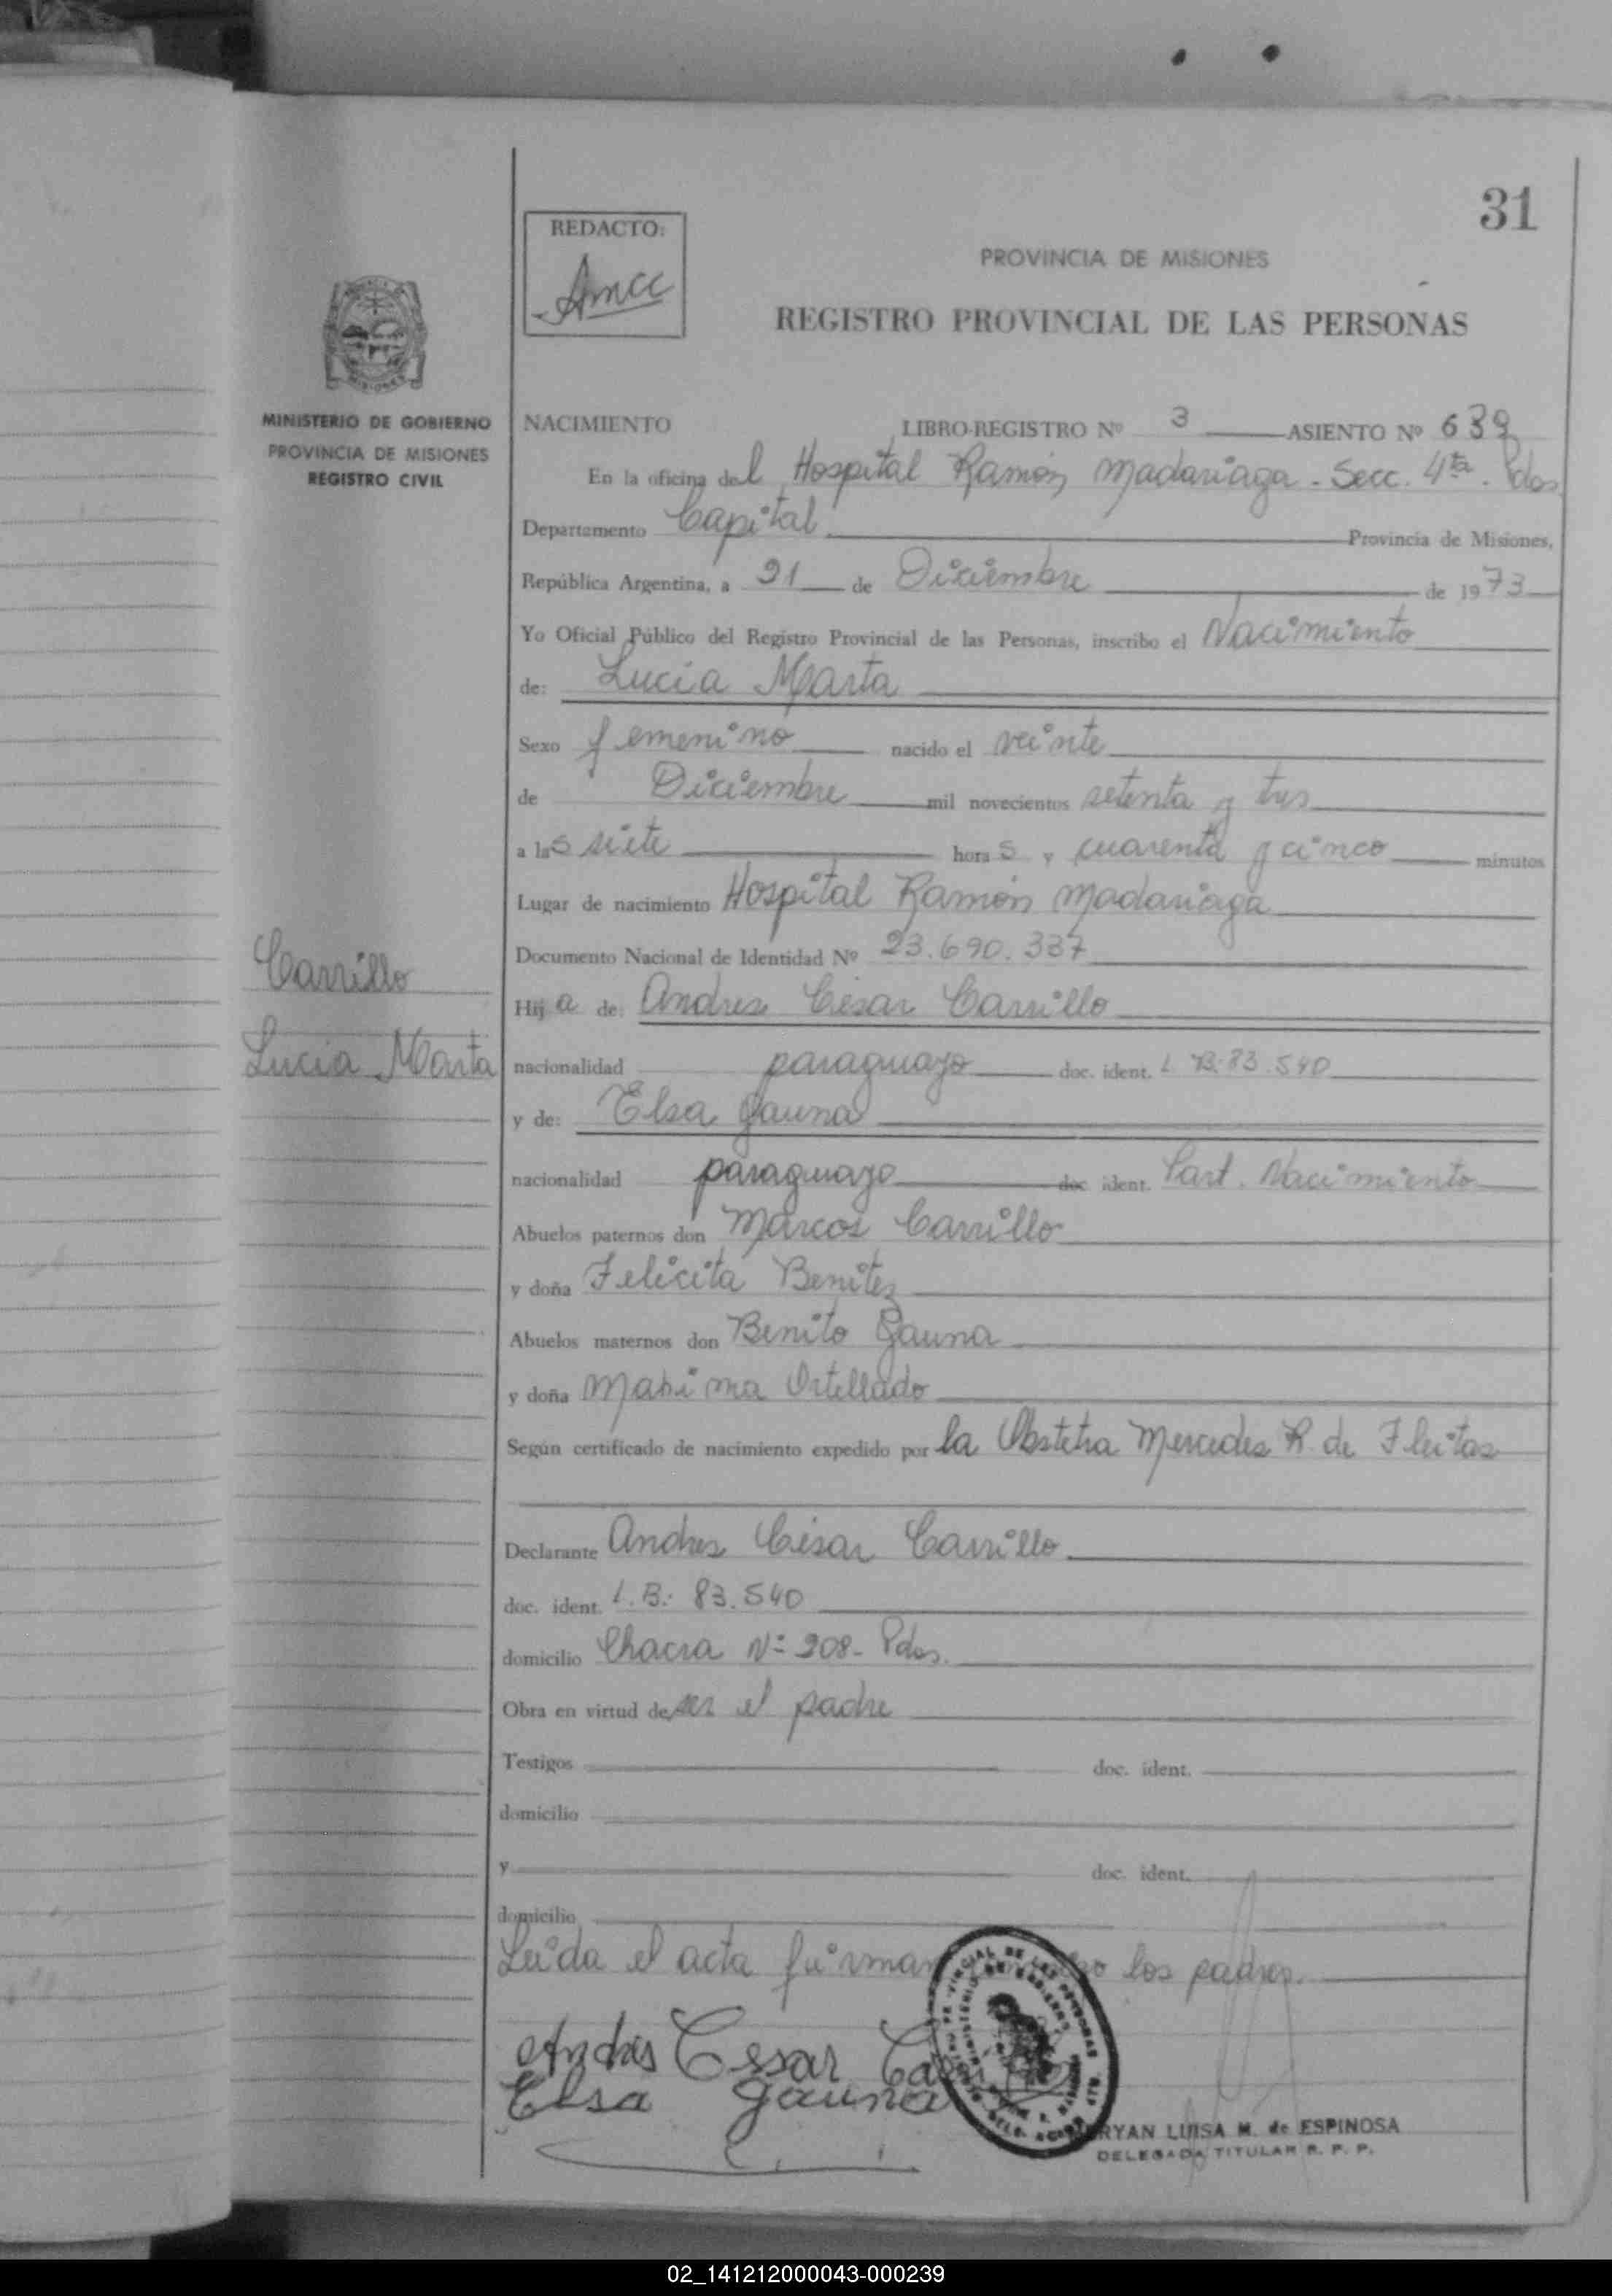 31
REDACTO:
Amcc
PROVINCIA DE MISIONES
REGISTRO PROVINCIAL DE LAS PERSONAS
MINISTERIO DE GOBIERNO
PROVINCIA DE MISIONES
REGISTRO CIVIL
NACIMIENTO LIBRO-REGISTRO Nº 3 ASIENTO Nº 639
En la oficina del Hospital Ramón Madariaga - Secc. 4ta. Pdas
Departamento Capital Provincia de Misiones,
República Argentina, a 21 de Diciembre de 1973
Yo Oficial Público del Registro Provincial de las Personas, inscribo el Nacimiento
de: Lucia Marta
Sexo femenino nacido el veinte
de Diciembre mil novecientos setenta y tres
a las siete horas y cuarenta y cinco minutos
Lugar de nacimiento Hospital Ramón Madariaga
Documento Nacional de Identidad Nº 23.690.337
Carrillo
Lucia Marta
Hija de: Andres César Carrillo
nacionalidad paraguayo doc. ident. L.B. 83.540
y de: Elsa Gauna
nacionalidad paraguayo doc ident. Part. Nacimiento
Abuelos paternos don Marcos Carrillo
y doña Felicita Benitez
Abuelos maternos don Benito Gauna
y doña Ortellado
Según certificado de nacimiento expedido por la Obstetra Mercedes R. de Fleitas
Declarante Andres César Carrillo
doc. ident. L.B.: 83.540
domicilio Chacra Nº 208- Pdas.
Obra en virtud de ser el padre
Testigos doc. ident.
domicilio
y doc. ident.
domicilio
Leida el acta firman los padres.
Andres Cesar
Elsa Gauna
MERYAN LUISA M. de ESPINOSA
DELEGADA TITULAR R. P. P.
02_141212000043-000239